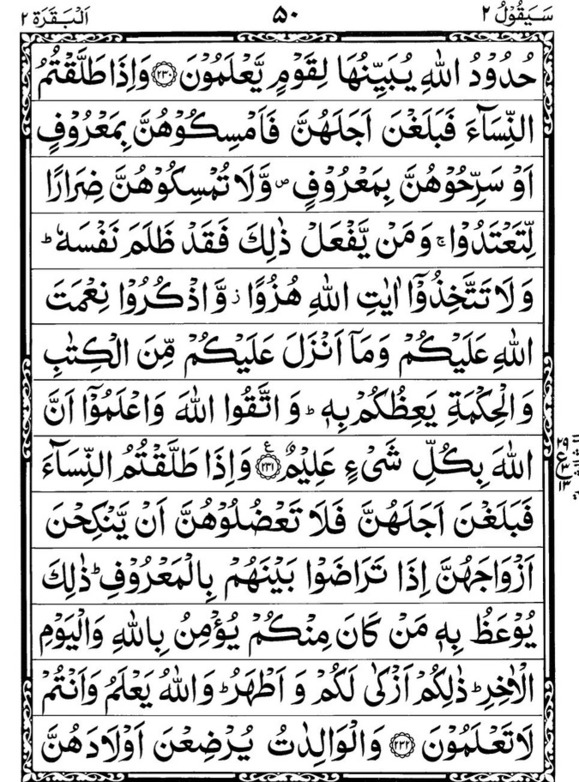 سَيَقُوْلُ ٢ ٥٠ اَلْبَقَرَة ٢
حُدُوْدُ اللّٰهِ يُبَيِّنُهَا لِقَوْمٍ يَّعْلَمُوْنَ ﴿٢٣٠﴾ وَاِذَا طَلَّقْتُمُ
النِّسَآءَ فَبَلَغْنَ اَجَلَهُنَّ فَاَمْسِكُوْهُنَّ بِمَعْرُوْفٍ
اَوْ سَرِّحُوْهُنَّ بِمَعْرُوْفٍ ۪ وَّلَا تُمْسِكُوْهُنَّ ضِرَارًا
لِّتَعْتَدُوْا ۚ وَمَنْ يَّفْعَلْ ذٰلِكَ فَقَدْ ظَلَمَ نَفْسَهٗ ؕ
وَلَا تَتَّخِذُوْٓا اٰيٰتِ اللّٰهِ هُزُوًا ز وَّاذْكُرُوْا نِعْمَتَ
اللّٰهِ عَلَيْكُمْ وَمَاۤ اَنْزَلَ عَلَيْكُمْ مِّنَ الْكِتٰبِ
وَالْحِكْمَةِ يَعِظُكُمْ بِهٖ ؕ وَاتَّقُوا اللّٰهَ وَاعْلَمُوْٓا اَنَّ
اللّٰهَ بِكُلِّ شَيْءٍ عَلِيْمٌ ﴿٢٣١﴾ ع وَاِذَا طَلَّقْتُمُ النِّسَآءَ
فَبَلَغْنَ اَجَلَهُنَّ فَلَا تَعْضُلُوْهُنَّ اَنْ يَّنْكِحْنَ
اَزْوَاجَهُنَّ اِذَا تَرَاضَوْا بَيْنَهُمْ بِالْمَعْرُوْفِ ؕ ذٰلِكَ
يُوْعَظُ بِهٖ مَنْ كَانَ مِنْكُمْ يُؤْمِنُ بِاللّٰهِ وَالْيَوْمِ
الْاٰخِرِ ؕ ذٰلِكُمْ اَزْكٰى لَكُمْ وَاَطْهَرُ ؕ وَاللّٰهُ يَعْلَمُ وَاَنْتُمْ
لَا تَعْلَمُوْنَ ﴿٢٣٢﴾ وَالْوَالِدٰتُ يُرْضِعْنَ اَوْلَادَهُنَّ